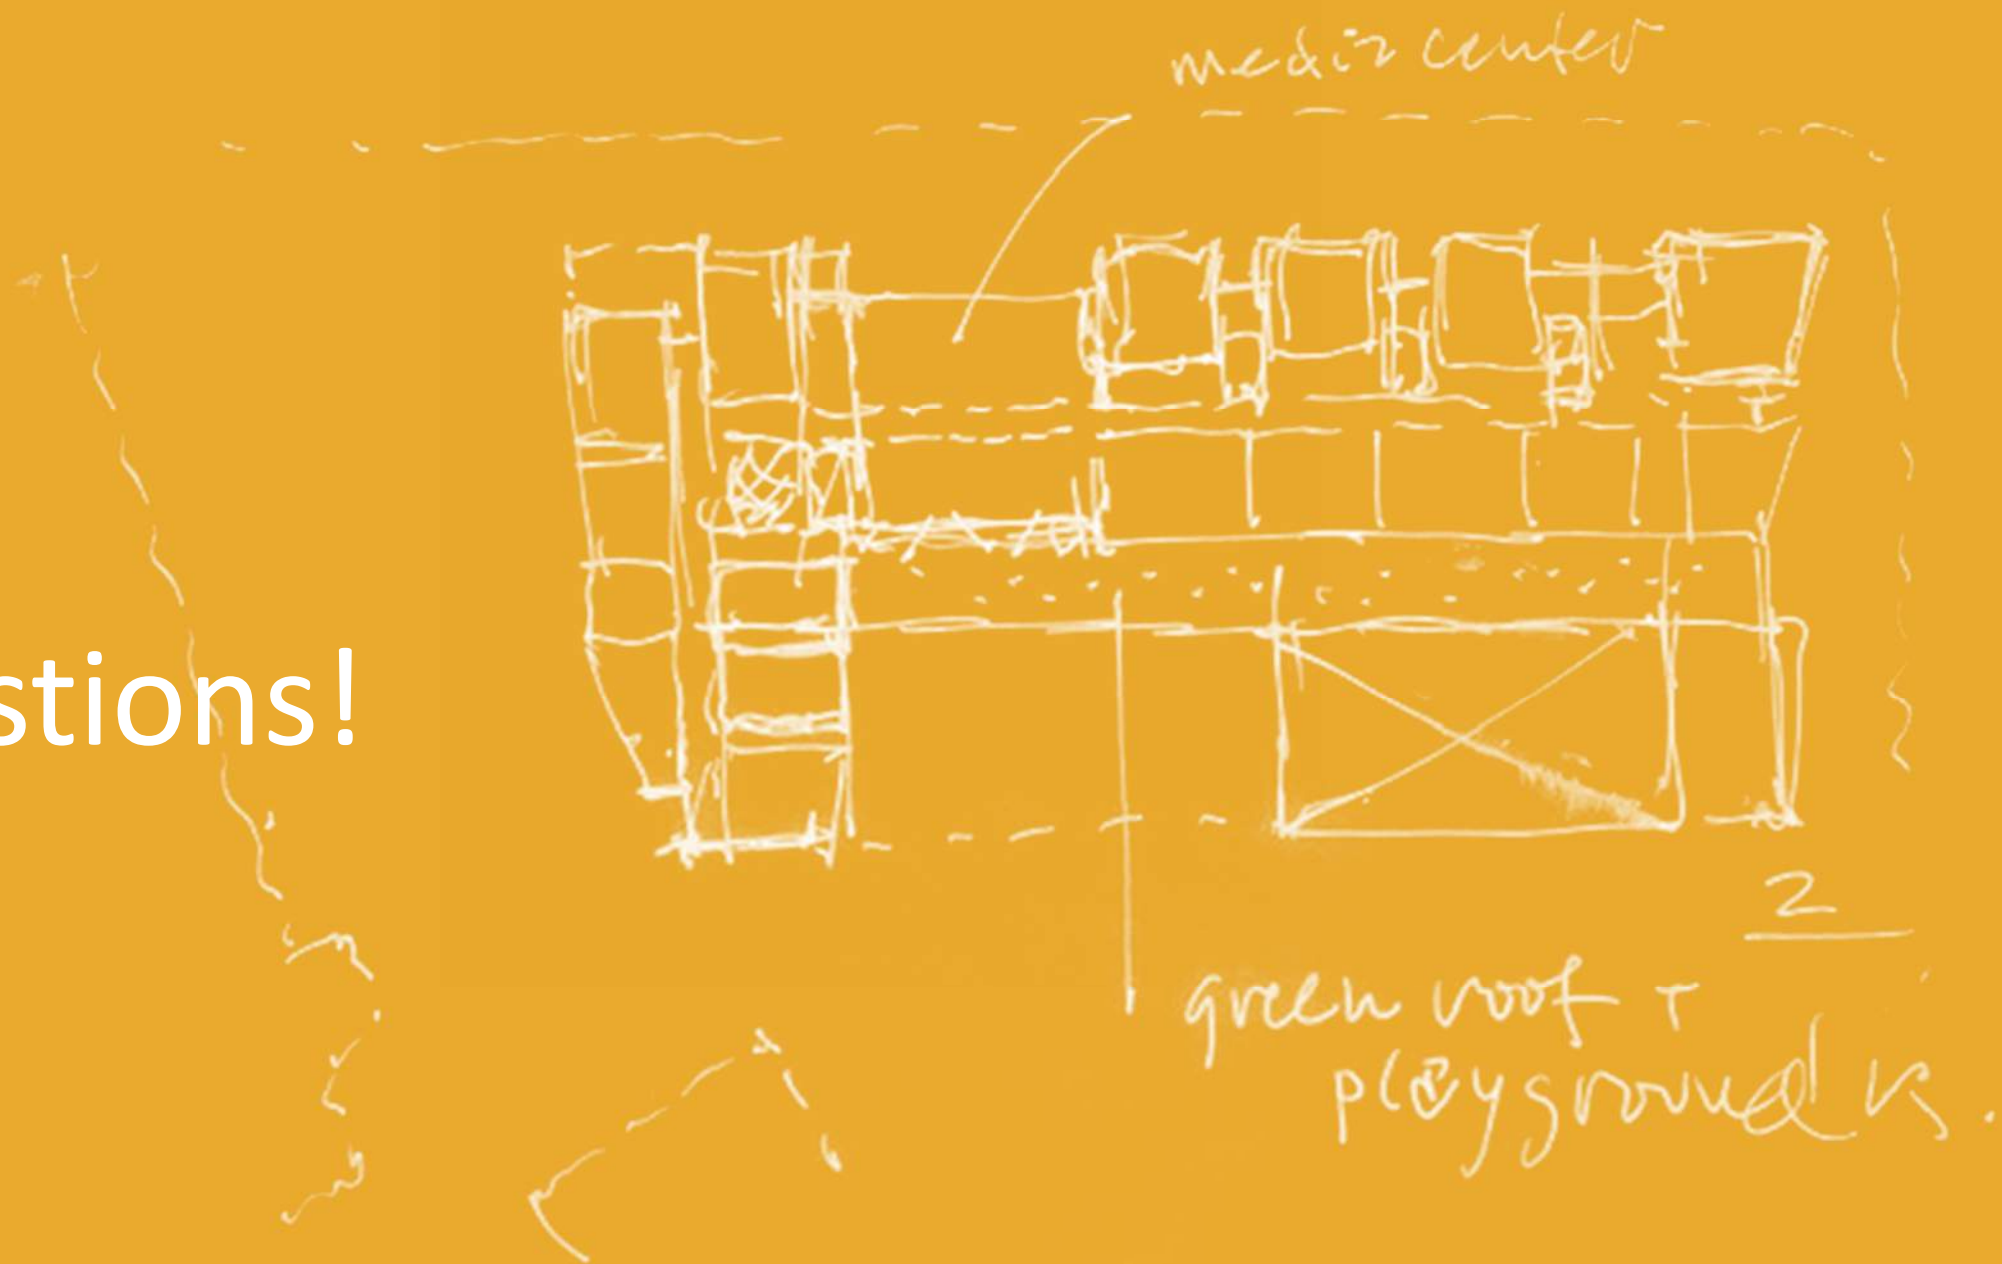 media center
stions!
2
green roof +
playground